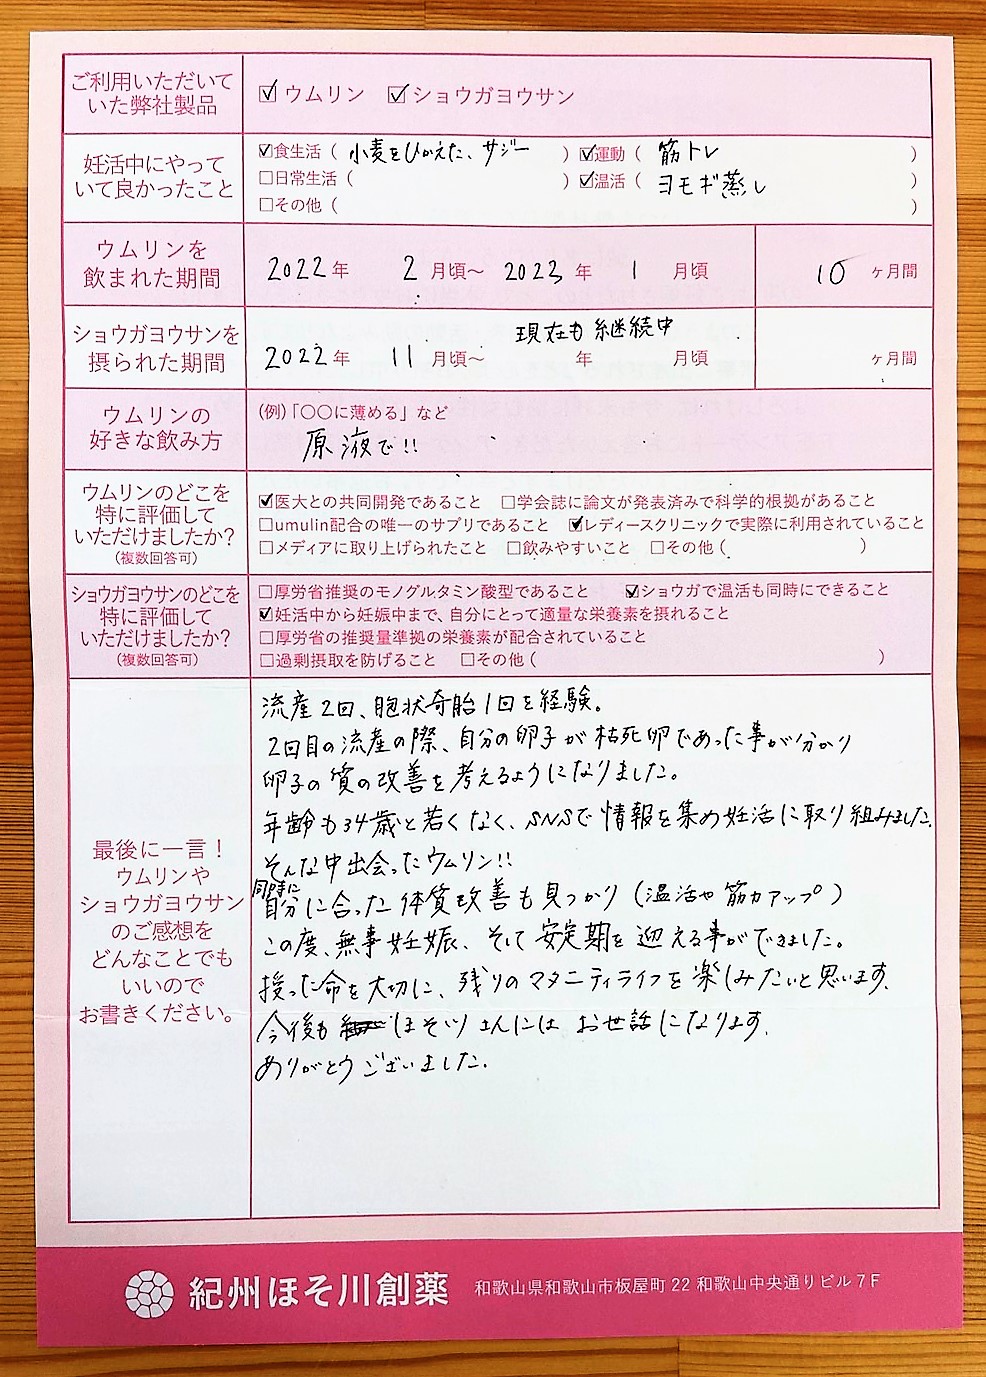 ご利用いただいて
いた弊社製品
☑ウムリン ☑ショウガヨウサン
妊活中にやって
いて良かったこと
☑食生活（ 小麦をひかえた、サジー ） ☑運動（ 筋トレ ）
☐日常生活（ ） ☑温活（ ヨモギ蒸し ）
☐その他（ ）
ウムリンを
飲まれた期間
2022年 2月頃〜2023年 1月頃
10ヶ月間
ショウガヨウサンを
摂られた期間
現在も継続中
2022年 11月頃〜 年 月頃
ヶ月間
ウムリンの
好きな飲み方
（例）「〇〇に薄める」など
原液で!!
ウムリンのどこを
特に評価して
いただけましたか？
（複数回答可）
☑医大との共同開発であること ☐学会誌に論文が発表済みで科学的根拠があること
☐umulin配合の唯一のサプリであること ☑レディースクリニックで実際に利用されていること
☐メディアに取り上げられたこと ☐飲みやすいこと ☐その他（ ）
ショウガヨウサンのどこを
特に評価して
いただけましたか？
（複数回答可）
☐厚労省推奨のモノグルタミン酸型であること ☑ショウガで温活も同時にできること
☑妊活中から妊娠中まで、自分にとって適量な栄養素を摂れること
☐厚労省の推奨量準拠の栄養素が配合されていること
☐過剰摂取を防げること ☐その他（ ）
最後に一言！
ウムリンや
ショウガヨウサン
のご感想を
どんなことでも
いいので
お書きください。
流産2回、胞状奇胎1回を経験。
2回目の流産の際、自分の卵子が枯死卵であった事が分かり
卵子の質の改善を考えるようになりました。
年齢も34歳と若くなく、SNSで情報を集め妊活に取り組みました。
そんな中出会ったウムリン!!
同時に
自分に合った体質改善も見つかり（温活や筋力アップ）
この度、無事妊娠、そして安定期を迎える事ができました。
授った命を大切に、残りのマタニティライフを楽しみたいと思います。
今後も ほそ川さんには お世話になります。
ありがとうございました。
紀州ほそ川創薬 和歌山県和歌山市板屋町22 和歌山中央通りビル7F